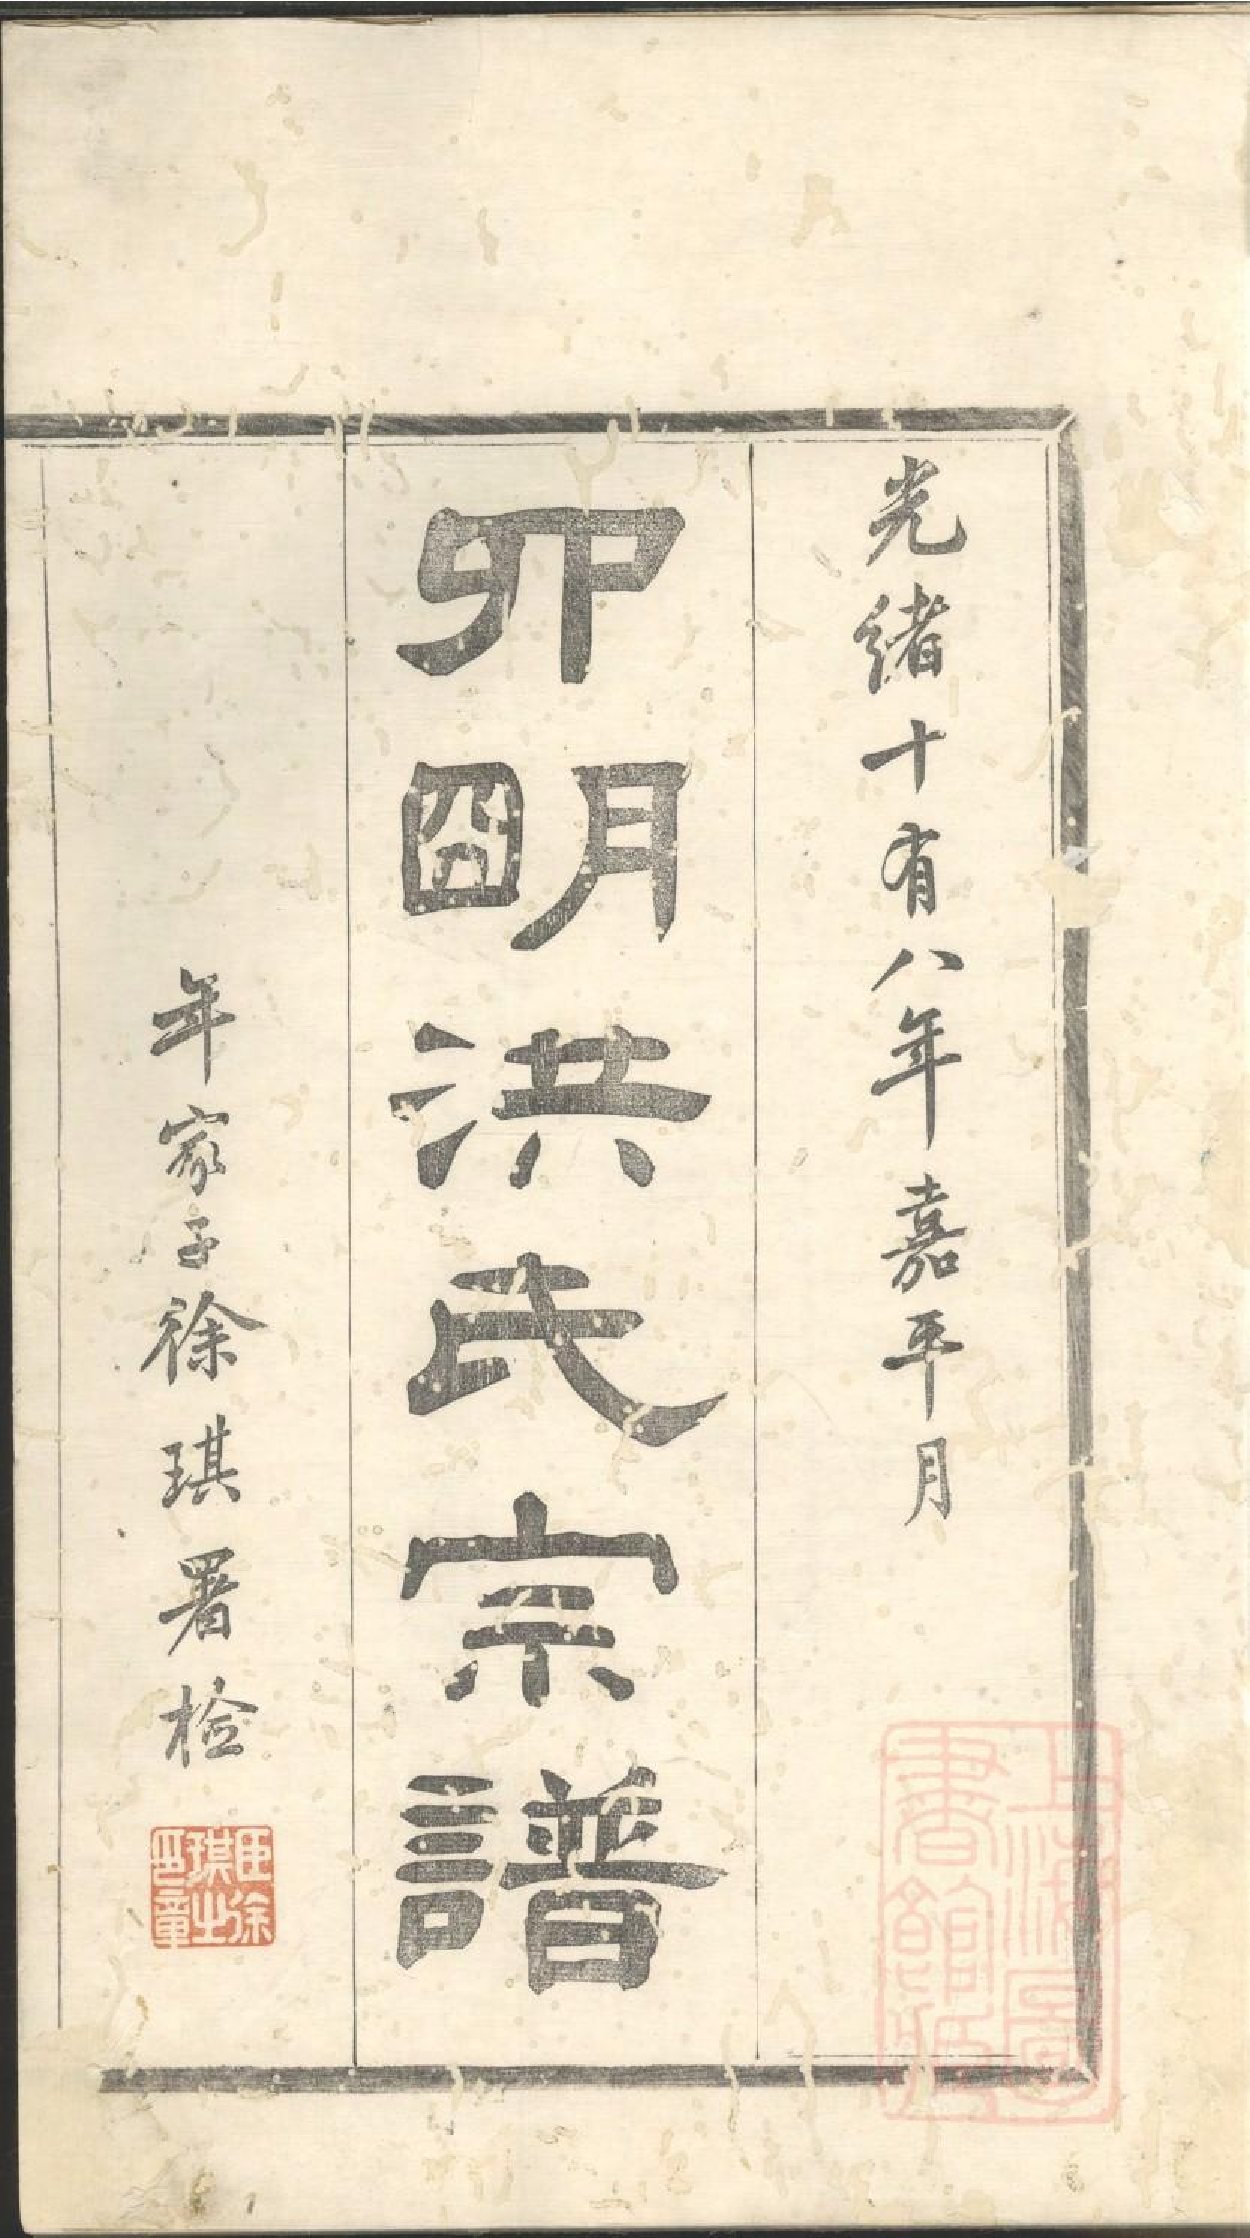 光緒十有八年嘉平月
卯朙洪氏宗譜
年家子徐琪署檢
臣徐
琪之
印章
上海圖
書館藏